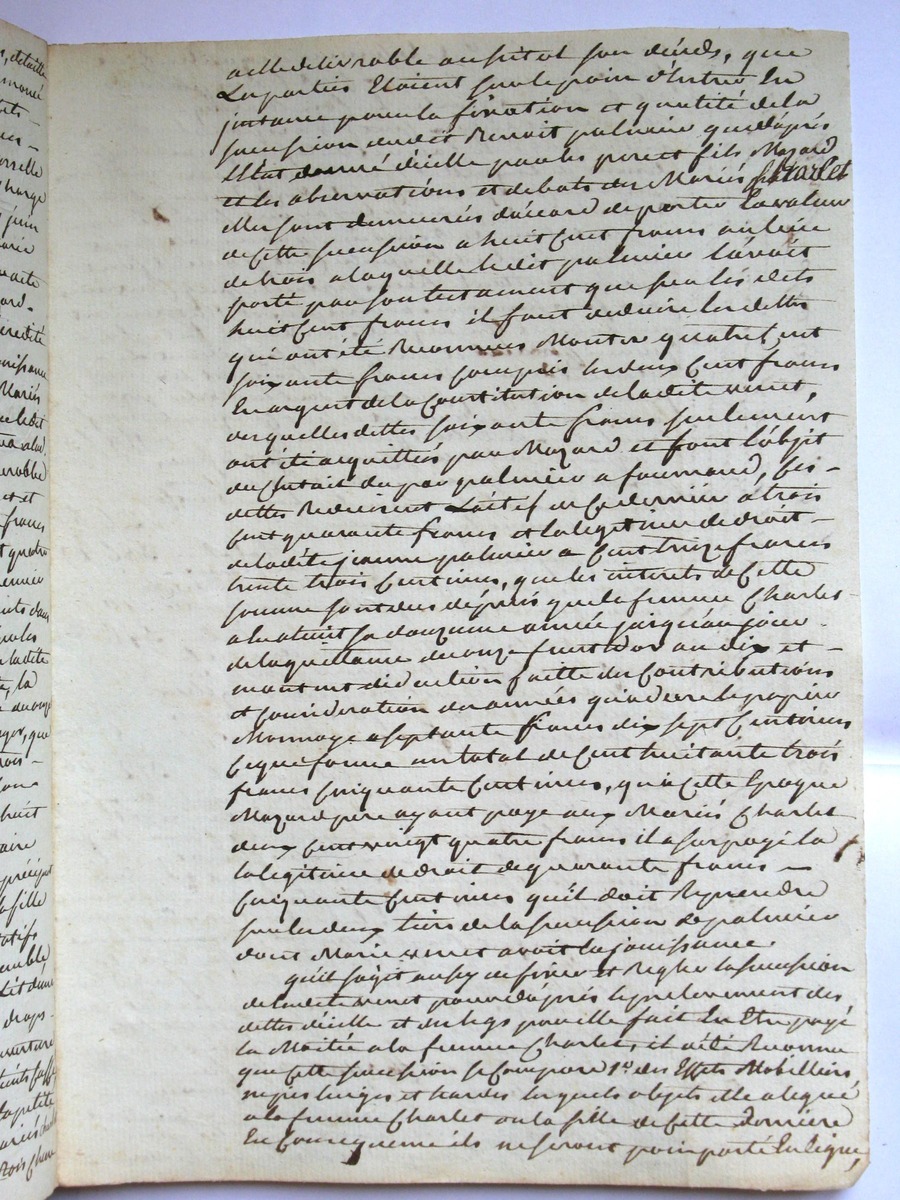 a elle delivrable aussitot son décéds, que
Les parties Etoient sur le point d'Entrer En
instance pour la fixation et quotité de la
succession dudit Benoit palmier que d'après
l'état donné d'icelle par les pere et fils Mazard
et les observations et debats des Mariés Charlet
elles sont demeurés d'accord de porter la valeur
de Cette succession a huit Cent francs au lieu
de trois a laquelle ledit palmier l'avoit
porté par son testament que sur les dets
huit Cent francs il faut deduire les dettes
qui ont été Reconnues Monter quatre Cent
soixante francs compris les deux Cent francs
En argent de la Constitution de ladite venet,
desquelles dettes soixante francs seulement
ont été acquittés par Mazard et font l'objet
de dettes Reduisent L'actif de Ce dernier à trois
cent quarante francs et la legitime de droit
de ladite jeanne palmier a Cent treize francs
trente trois Centimes, que les interets de Cette
somme sont dus depuis que la femme Charlet
a atteint sa douzieme année jusqu'au jour
de la quittance du onze fructidor an dix et
montent deduction faitte des Contributions
et Consideration des années qu'a duré le papier
Monnoye a septante francs dix sept Centimes
Ce que forme un total de Cent huitante trois
francs Cinquante Centimes, qu'a Cette Epoque
Mazard pere ayant payé aux Mariés Charlet
deux Cent vingt quatre francs il a surpayé la
la legitime de droit de quarante francs
Cinquante Centimes qu'il doit Reprendre
sur les deux tiers de la succession de palmier
dont Marie venet avoit la jouissance.
qu'il s'agit aussy de fixer et Regler la succession
de ladite venet pour d'après le prelevement des
dettes d'icelle et des legs par elle fait En Etre payé
la Moitié a la femme Charlet, il a été Reconnu
que Cette succession se Compose 1º. des Effets Mobilliers
nipes linges et hardes lesquels objets elle a legué
a la femme Charlet ou la fille de Cette derniere
En Consequence ils ne seront point porté En ligne,